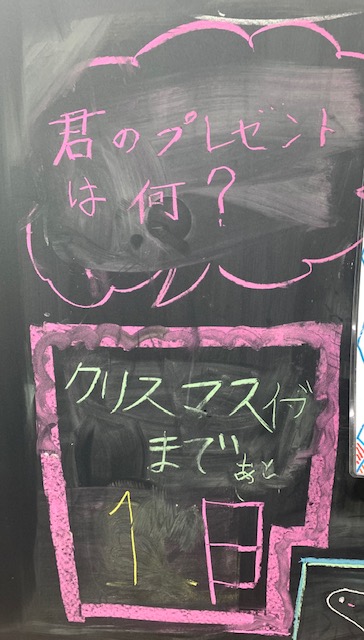 君のプレゼント
は何？
クリスマスイブ
まであと
1日